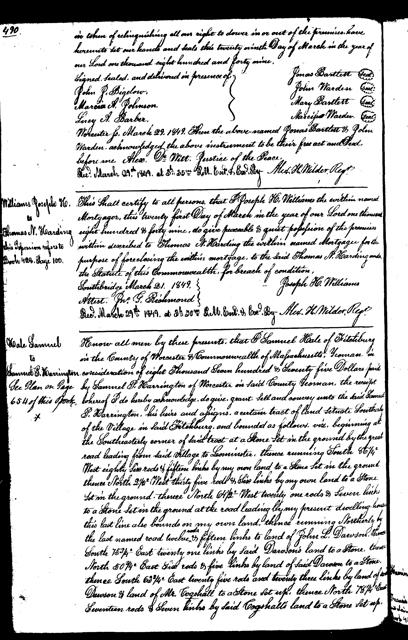 490
in token of relinquishing all our right to dower in or out of the premises, have
hereunto set our hands and seals this twenty ninth Day of March in the year of
our Lord one thousand eight hundred and forty nine.
Signed, sealed, and delivered in presence of } Jonas Bartlett Seal
John P. Bigelow. John Warden Seal
Marcia A. Johnson Mary Bartlett Seal
Lucy A. Barber. Warden Seal
Worcester Js. March 29. 1849. Then the above named Jonas Bartlett & John
Warden, acknowledged the above instrument to be their free act and Deed.
before me Alex. De Witt. Justice of the Peace.
Rec. March 29th 1849. at 3h. 30m P.M. Ent. & Exd. By Alex. H. Wilder Regr.
Williams Joseph H.
to
Thomas N. Harding
this Dismission refers to
Book Page 100.
This Shall certify to all persons, that I Joseph H. Williams the within named
Mortgagor, this twenty first Day of March in the year of our Lord one thousand
eight hundred & forty nine, do give peaceable & quiet possession of the premises
within described to Thomas N. Harding the within named Mortgagee, for the
purpose of foreclosing the within mortgage, to the said Thomas N. Harding under
the Statute of this Commonwealth, for breach of condition,
Southbridge March 21. 1849. } Joseph H. Williams
Attest. G. Richmond
Rec. March 29th 1849. at 3h. 30m P.M. Ent. & Exd. By Alex. H. Wilder Regr.
Hale Samuel
to
Samuel P. Harrington
See Plan on Page
654 of this Book.
x
Know all men by these presents, that I Samuel Hale of Fitchburg
in the County of Worcester & Commonwealth of Massachusetts, Yeoman in
consideration of eight Thousand Seven hundred & Seventy five Dollars paid
by Samuel P. Harrington of Worcester in said County Yeoman, the receipt
whereof I do hereby acknowledge, do give, grant, sell and convey unto the said Samuel
P. Harrington, his heirs and assigns, a certain tract of Land situate Southerly
of the Village in said Fitchburg, and bounded as follows, viz. beginning at
the Southeasterly corner of said tract at a Stone Set in the ground by the great
road leading from said Village to Leominster, thence running South
West eighty five rods & fifteen links by my own land to a Stone Set in the ground
thence North West thirty five rods & Six links by my own land to a Stone
Set in the ground. thence North West twenty one rods & Seven links
to a Stone Set in the ground at the road leading by my present dwelling house
this last line also bounds on my own land, thence running Northerly by
the last named road twelve rods & fifteen links to land of John S. Dawson. thence
South 78¾° East twenty one links by said Dawson's land to a Stone. thence
North East Six rods & five links by land of said Dawson to a Stone.
thence South 63¾° East twenty five rods and twenty three links by land of said
Dawson & land of Mr. Cogshall to a Stone Set up. thence North 78¼° East
Seventeen rods & Seven links by said Cogshall's land to a Stone Set up.